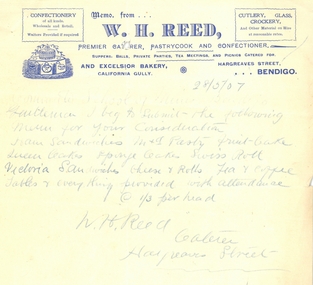 CONFECTIONERY
of all kinds
Wholesale and Retail.
Waiters Provided if required
Memo. from ...
W. H. REED,
PREMIER CATERER, PASTRYCOOK AND CONFECTIONER,
SUPPERS, BALLS, PRIVATE PARTIES, TEA MEETINGS, AND PICNICS CATERED FOR.
AND EXCELSIOR BAKERY,
CALIFORNIA GULLY.
CUTLERY, GLASS,
CROCKERY,
And Other Material on Hire
at reasonable rates.
HARGREAVES STREET,
... BENDIGO.
Gentlemen I beg to Submit the following
Menu for your Consideration
Ham Sandwiches Fruit Cake
Queen Cakes Sponge Cakes Swiss Roll
Victoria Sandwiches Cheese & Rolls Tea & Coffee
Tables & everything provided with attendance
@ 1/3 per head
W. H. Reed
Caterer
Hargreaves Street